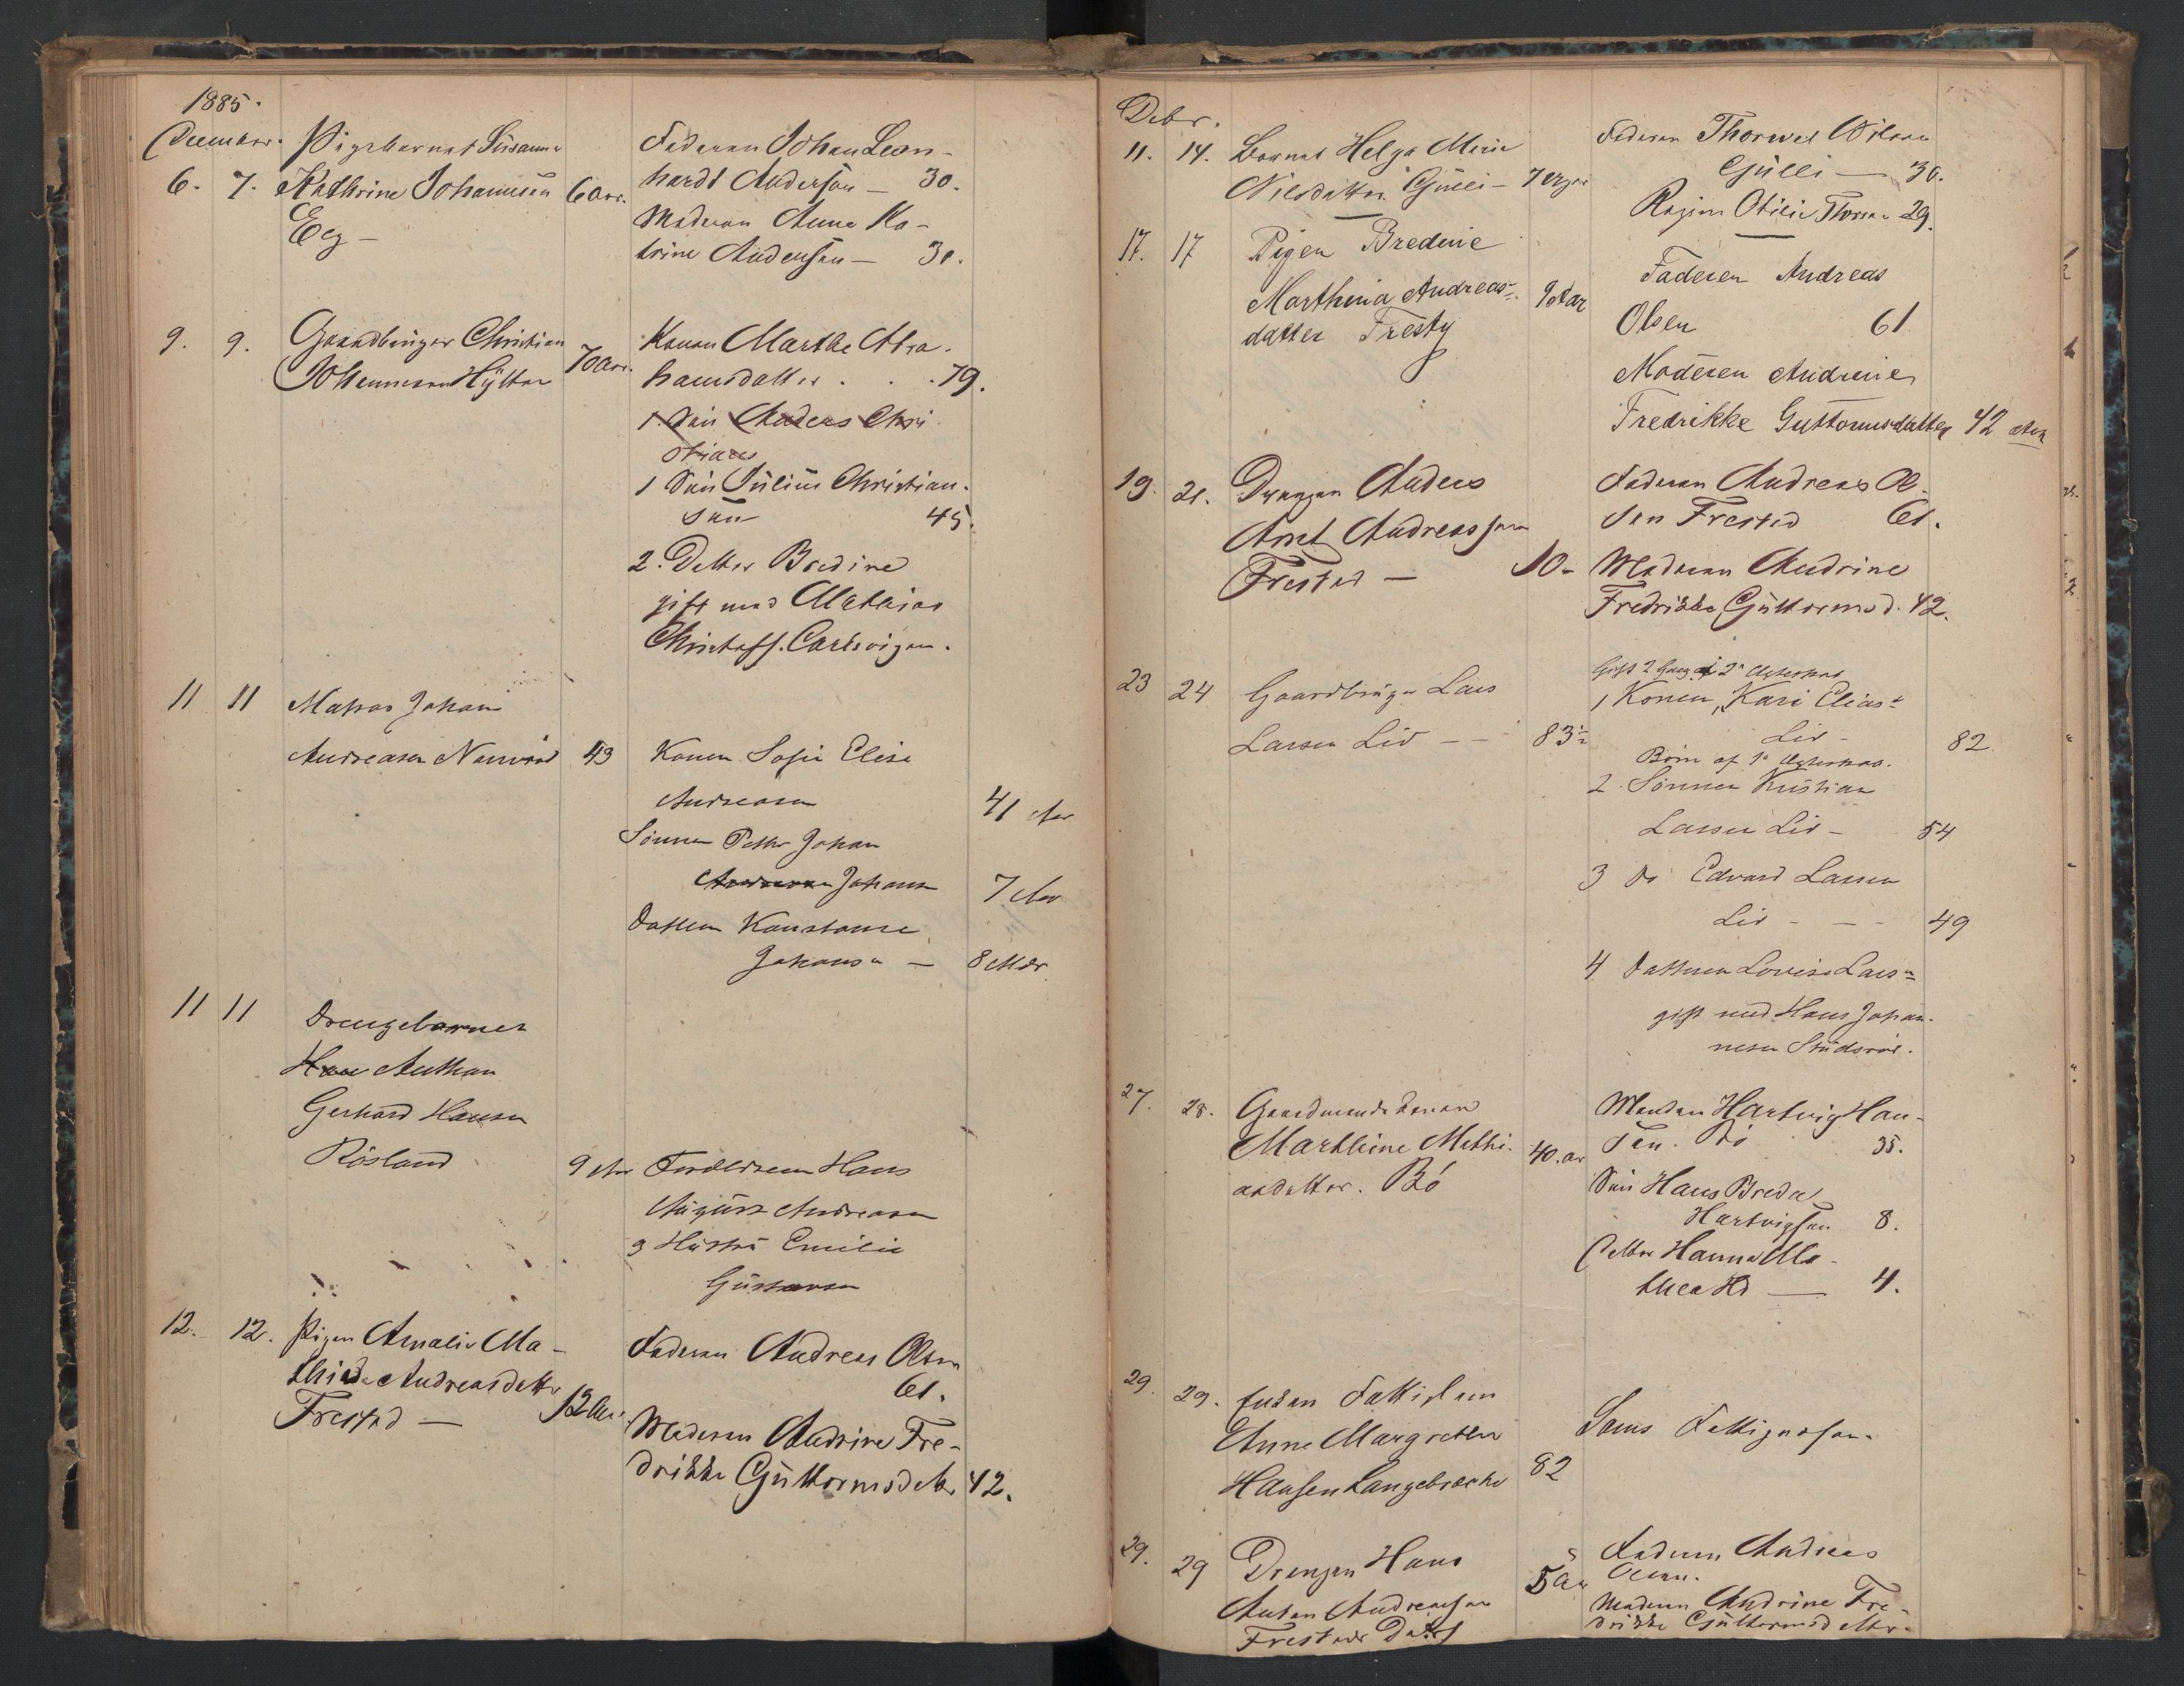 1885.
December.
6. 7. Pigebarnet Susanna
Kathrine Johannesen 6 aar.
Eeg —
Faderen Johan Leon-
hardt Andersen — 30.
Moderen Anne Ka-
trine Andersen — 30.
9. 9. Gaardbruger Christian
Johannesen Hÿttan 70 aar.
Konen Marthe Abra-
hamsdatter . . . 79.
1. Søn Anders Chri
stians
1 Søn Julius Christian-
sen 45.
2. Datter Bredine
gift med Mathias
Christoff. Carlsvigen.
11 11 Matros Johan
Andreasen Narvird 43
Konen Sofie Elise
Andreasen 41 Aar
Sønnen Peder Johan
Andreasen Johansen 7 Aar
Datteren Konstanse
Johansen — 8 Mdr
11 11 Drengebarnet
Hans Anthon
Gerhard Hansen
Røsland 9 Aar
Forældrene Hans
August Andreasen
og Hustru Emilie
Gustavsen
12. 12. Pigen Amalie Ma-
thilde Andreasdatter
Frestad — 12 Aar.
Faderen Andreas Olsen
61.
Moderen Andrine Fre-
drikke Guttormsdatter 42.
Debr.
11. 14. Barnet Helga Marie
Nilsdatter Gülli — 7 Uger
Faderen Thorvel Nilsen
Gülli — 30.
Regine Otilie Thorsen 29.
17. 17 Pigen Bredine
Marthina Andreas-
datter Fresty 9 Aar
Faderen Andreas
Olsen 61
Moderen Andrine
Fredrikke Guttormsdatter 42 Aar
19. 21. Drengen Anders
Arnt Andreassen
Frestad — 10 -
Faderen Andreas Ol-
sen Frestad 61.
Moderen Andrine
Fredrikke Guttormsd. 42.
23 24 Gaardbruger Lars
Larsen Lid — — 83½
Gift 2 Gang i 2det Ægteskab
1, Konen, Kari Elias-
Lid - 82
Børn af 1ste Ægteskab.
2. Sønnen Kristian
Larsen Lid - 54
3 Do Edvard Larsen
Lid - - - 49
4 Datteren Lovise Lars-
gift med Hans Johan-
nesen Studsrød.
27. 28. Gaardmands Konen
Marthine Mathi-
asdatter. Bö 40. aar
Manden Hartvig Han-
sen. Bö 35.
Søn Hans Breda
Hartvigsen 8.
Datter Hanna Ma-
thea Hd — 4.
29. 29. Enken Fattiglem
Anne Margrethe
Hansen Langebrække 82
Sønns Fattigvæsen.
29. 29 Drengen Hans
Anton Andreassen
Frestad 5 Aar
Faderen Andreas
Olsen.
Moderen Andrine Fre-
drikke Guttormsdatter.